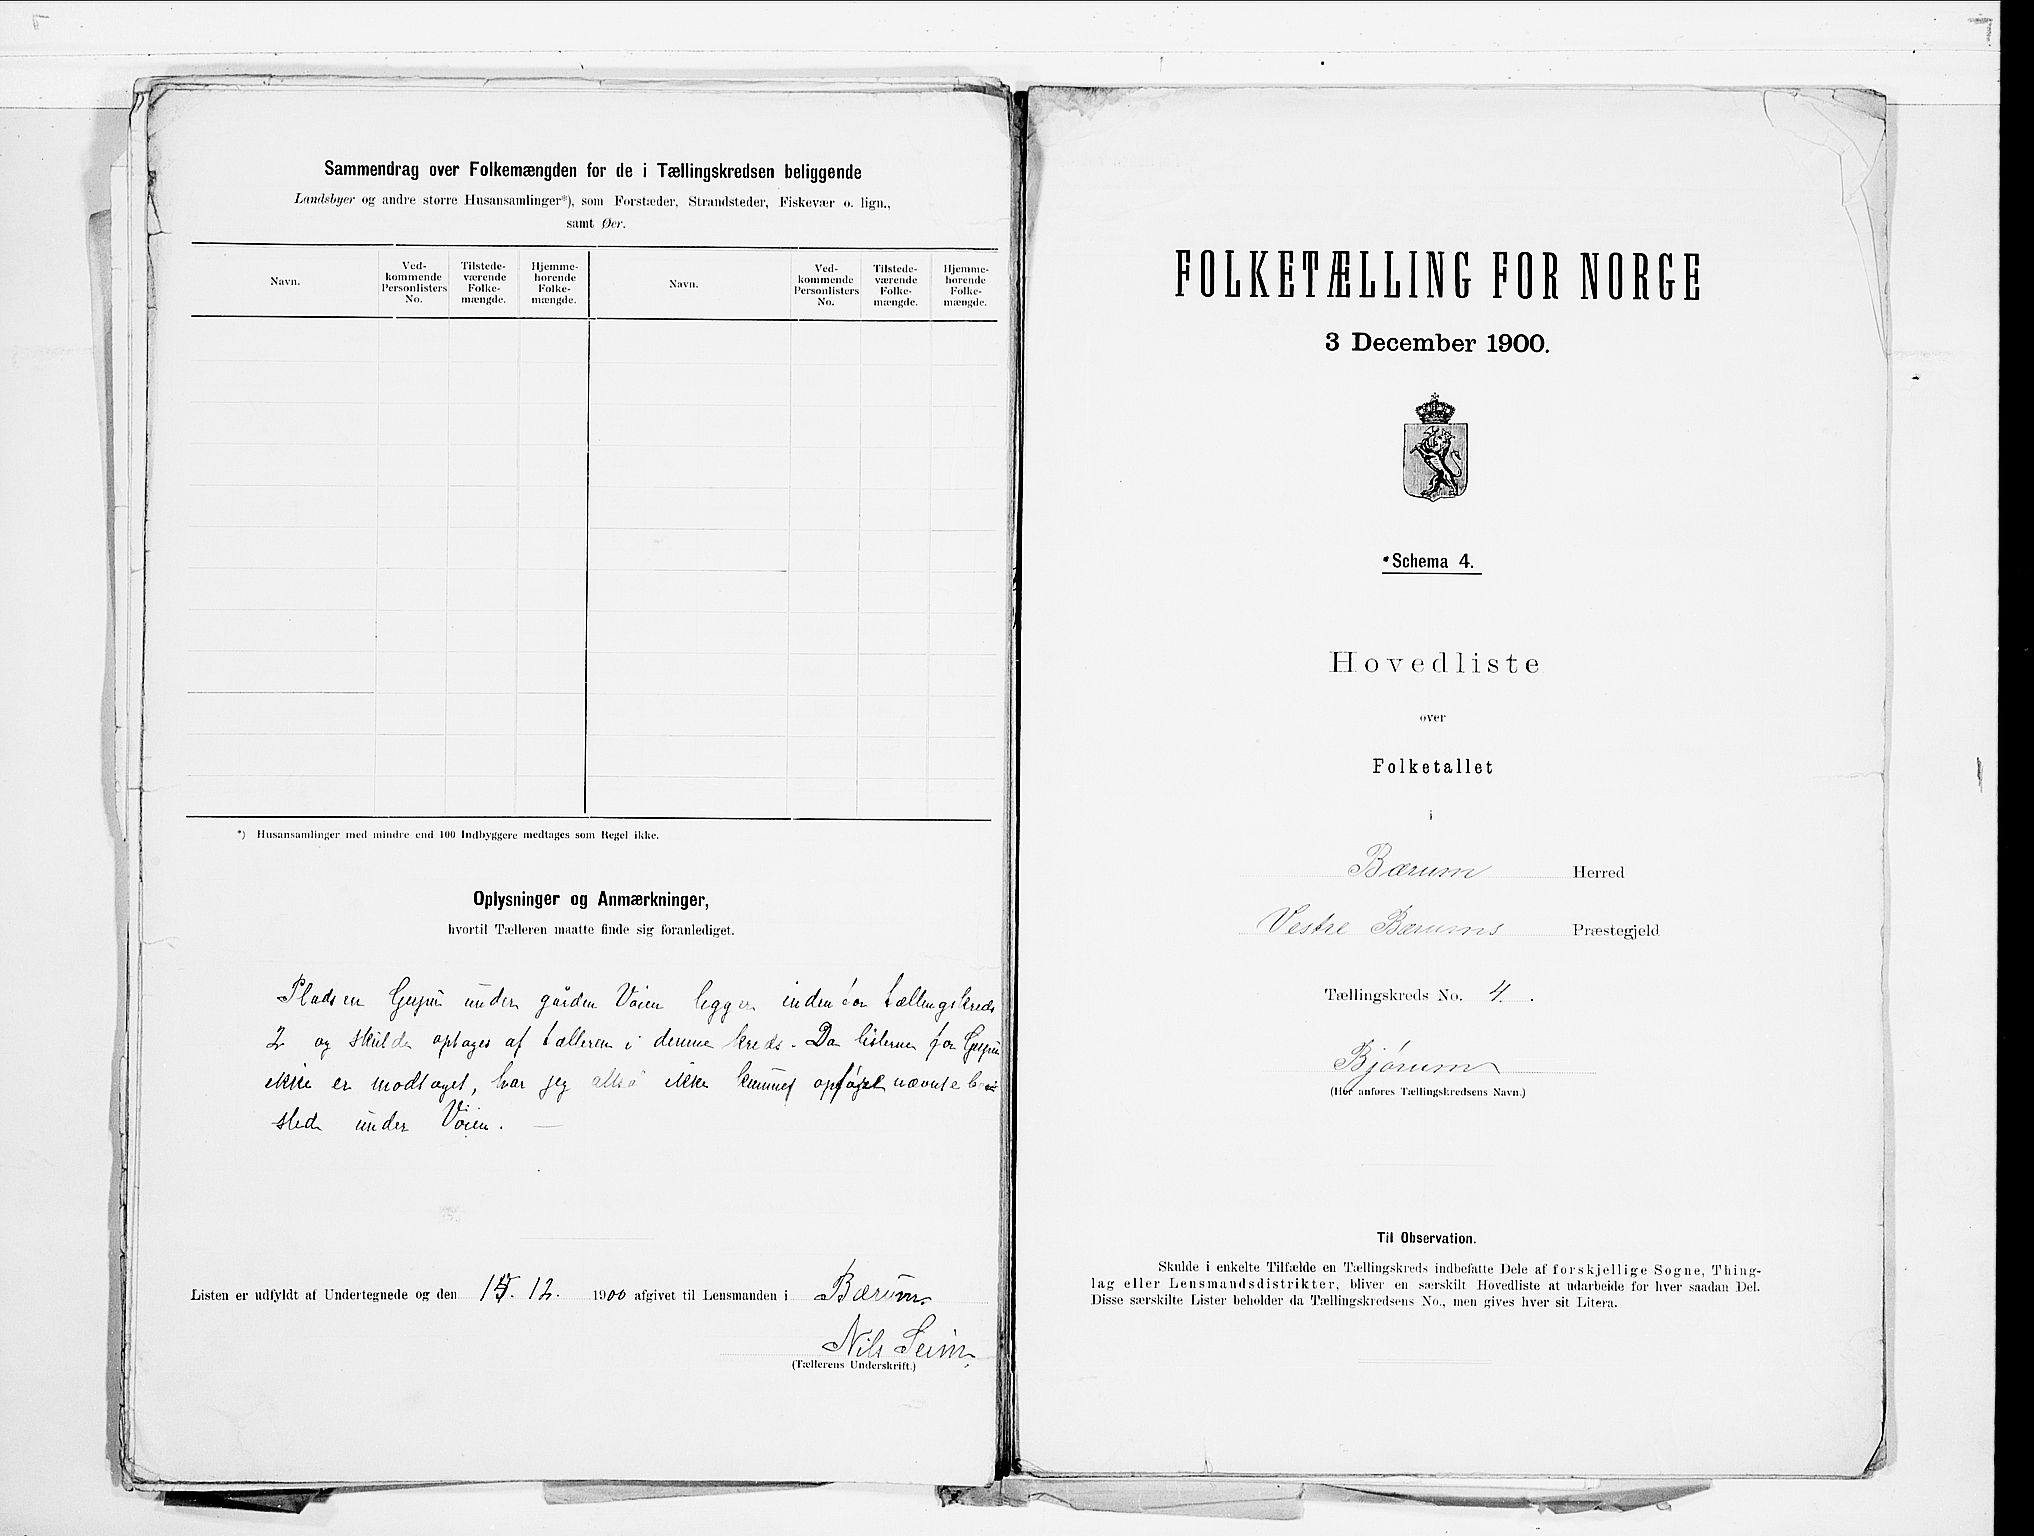 Sammendrag over Folkemængden for de i Tællingskredsen beliggende
Landsbyer og andre större Husansamlinger*), som Forstæder, Strandsteder, Fiskevær o. lign.,
samt Øer.
Navn.
Ved-
kommende
Personlisters
No.
Tilstede-
værende
Folke-
mængde.
Hjemme-
hörende
Folke-
mængde.
Navn.
Ved-
kommende
Personlisters
No.
Tilstede-
værende
Folke-
mængde.
Hjemme-
hörende
Folke-
mængde.
*) Husansamlinger med mindre end 100 Indbyggere medtages som Regel ikke.
Oplysninger og Anmærkninger,
hvortil Tælleren maatte finde sig foranlediget.
Pladsen under gården Vöien ligger indenfor tællingskreds
2 og skulde optages af tælleren i denne kreds. Da listerne for
ikke er modtaget, har jeg altså ikke kunnet opføre nævnte
sted under Vöien. —
Listen er udfyldt af Undertegnede og den 15. 12. 1900 afgivet til Lensmanden i Bærum
Nils Seim
(Tællerens Underskrift.)
FOLKETÆLLING FOR NORGE
3 December 1900.
*Schema 4.
Hovedliste
over
Folketallet
i
Bærum Herred
Vestre Bærums Præstegjeld
Tællingskreds No. 4.
Bjørum
(Her anföres Tællingskredsens Navn.)
Til Observation.
Skulde i enkelte Tilfælde en Tællingskreds indbefatte Dele af forskjellige Sogne, Thing-
lag eller Lensmandsdistrikter, bliver en særskilt Hovedliste at udarbeide for hver saadan Del.
Disse særskilte Lister beholder da Tællingskredsens No., men gives hver sit Litera.